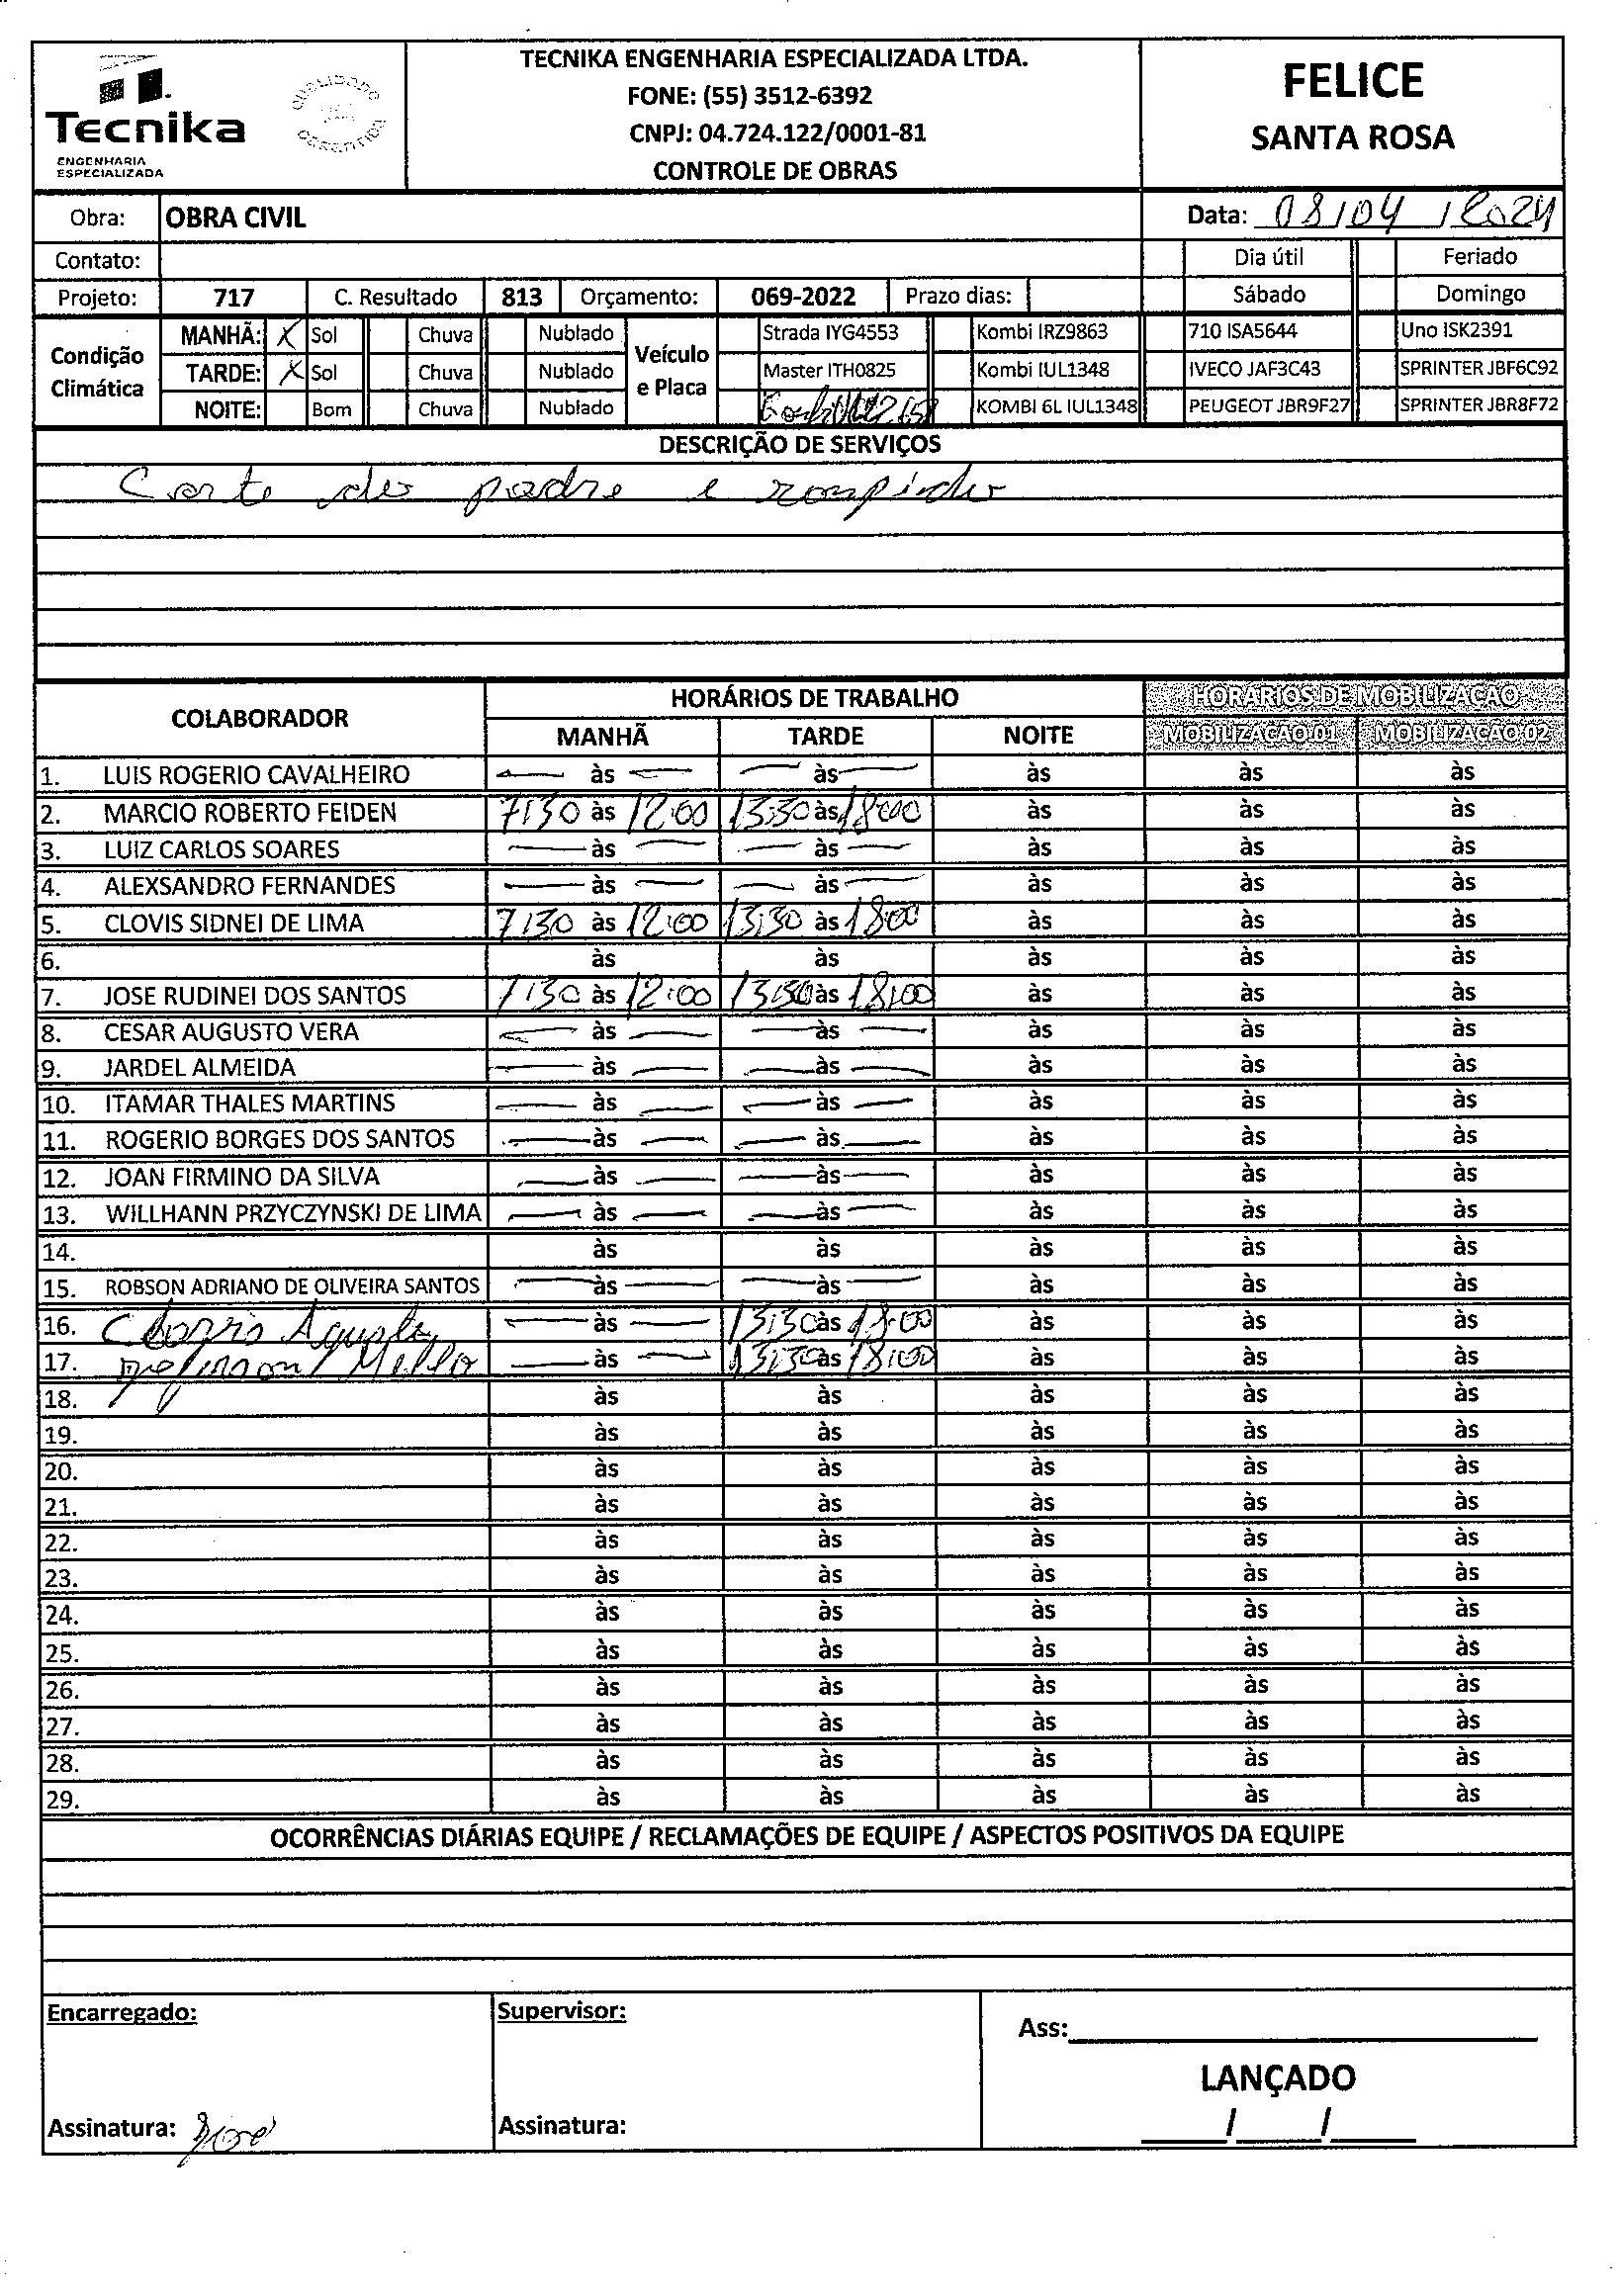 TECNIKA ENGENHARIA ESPECIALIZADA LTDA.
FONE: (55) 3512-6392
CNPJ: 04.724.122/0001-81
CONTROLE DE OBRAS
Tecnika
ENGENHARIA
ESPECIALIZADA
FELICE
SANTA ROSA
Obra: OBRA CIVIL Data: 08/04/2024
Contato: Dia útil Feriado
Projeto: 717 C. Resultado 813 Orçamento: 069-2022 Prazo dias: Sábado Domingo
Condição Climática
MANHÃ: X Sol Chuva Nublado
TARDE: X Sol Chuva Nublado
NOITE: Bom Chuva Nublado
Veículo e Placa
Strada IYG4553 Kombi IRZ9863 710 ISA5644 Uno ISK2391
Master ITH0825 Kombi IUL1348 IVECO JAF3C43 SPRINTER JBF6C92
KOMBI 6L IUL1348 PEUGEOT JBR9F27 SPRINTER JBR8F72
DESCRIÇÃO DE SERVIÇOS
Corte de padre e
COLABORADOR HORÁRIOS DE TRABALHO HORÁRIOS DE MOBILIZAÇÃO
MANHÃ TARDE NOITE MOBILIZAÇÃO 01 MOBILIZAÇÃO 02
1. LUIS ROGERIO CAVALHEIRO — às — — às — às às às
2. MARCIO ROBERTO FEIDEN 7:30 às 12:00 13:30 às 18:00 às às às
3. LUIZ CARLOS SOARES — às — — às — às às às
4. ALEXSANDRO FERNANDES — às — — às — às às às
5. CLOVIS SIDNEI DE LIMA 7:30 às 12:00 13:30 às 18:00 às às às
6. às às às às às
7. JOSE RUDINEI DOS SANTOS 7:30 às 12:00 13:30 às 18:00 às às às
8. CESAR AUGUSTO VERA — às — — às — às às às
9. JARDEL ALMEIDA — às — — às — às às às
10. ITAMAR THALES MARTINS — às — — às — às às às
11. ROGERIO BORGES DOS SANTOS — às — — às — às às às
12. JOAN FIRMINO DA SILVA — às — — às — às às às
13. WILLHANN PRZYCZYNSKI DE LIMA — às — — às — às às às
14. às às às às às
15. ROBSON ADRIANO DE OLIVEIRA SANTOS — às — — às — às às às
16. — às — 13:30 às 18:00 às às às
17. Mello — às — 13:30 às 18:00 às às às
18. às às às às às
19. às às às às às
20. às às às às às
21. às às às às às
22. às às às às às
23. às às às às às
24. às às às às às
25. às às às às às
26. às às às às às
27. às às às às às
28. às às às às às
29. às às às às às
OCORRÊNCIAS DIÁRIAS EQUIPE / RECLAMAÇÕES DE EQUIPE / ASPECTOS POSITIVOS DA EQUIPE
Encarregado: Supervisor: Ass:
LANÇADO
Assinatura: José Assinatura: / /